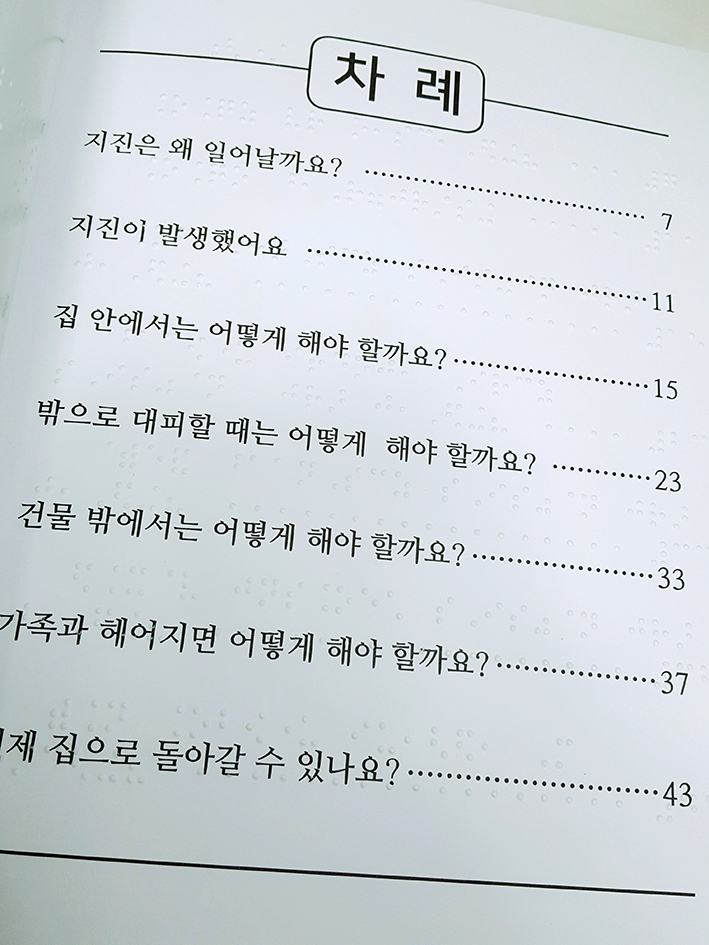 차 례
지진은 왜 일어날까요? 7
지진이 발생했어요 11
집 안에서는 어떻게 해야 할까요? 15
밖으로 대피할 때는 어떻게 해야 할까요? 23
건물 밖에서는 어떻게 해야 할까요? 33
가족과 헤어지면 어떻게 해야 할까요? 37
집으로 돌아갈 수 있나요? 43